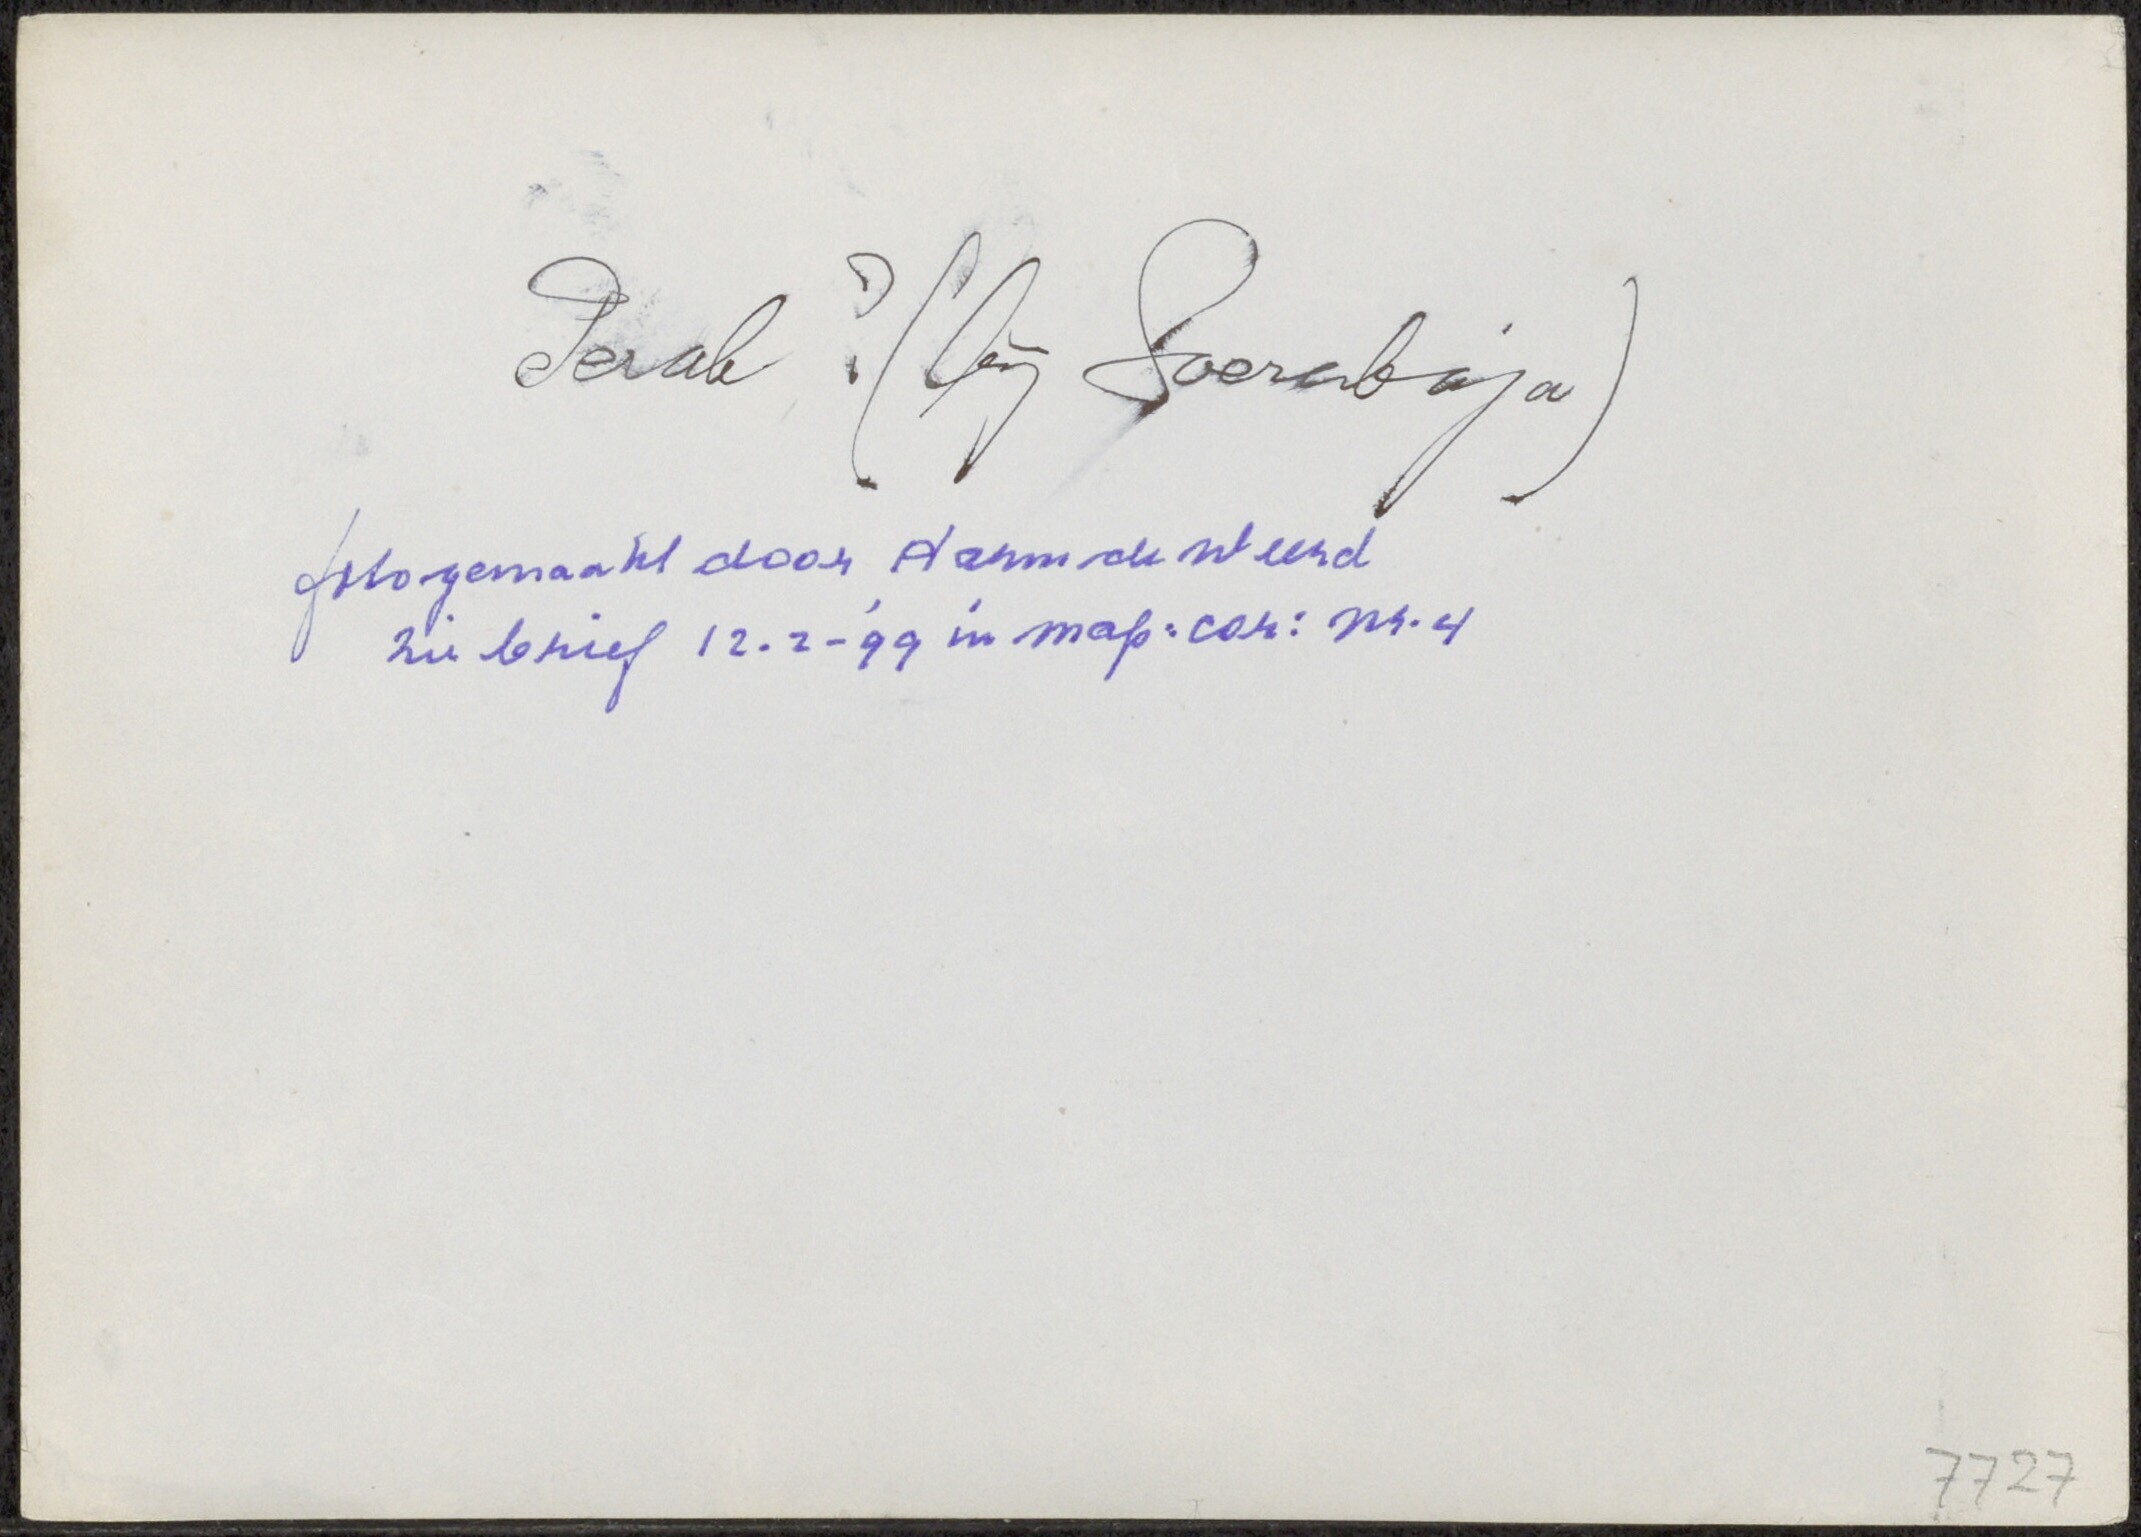 Perak ? (bij Soerabaja)
foto gemaakt door Harm de Weerd
zie brief 12.2-'99 in map: cor: nr. 4
7727